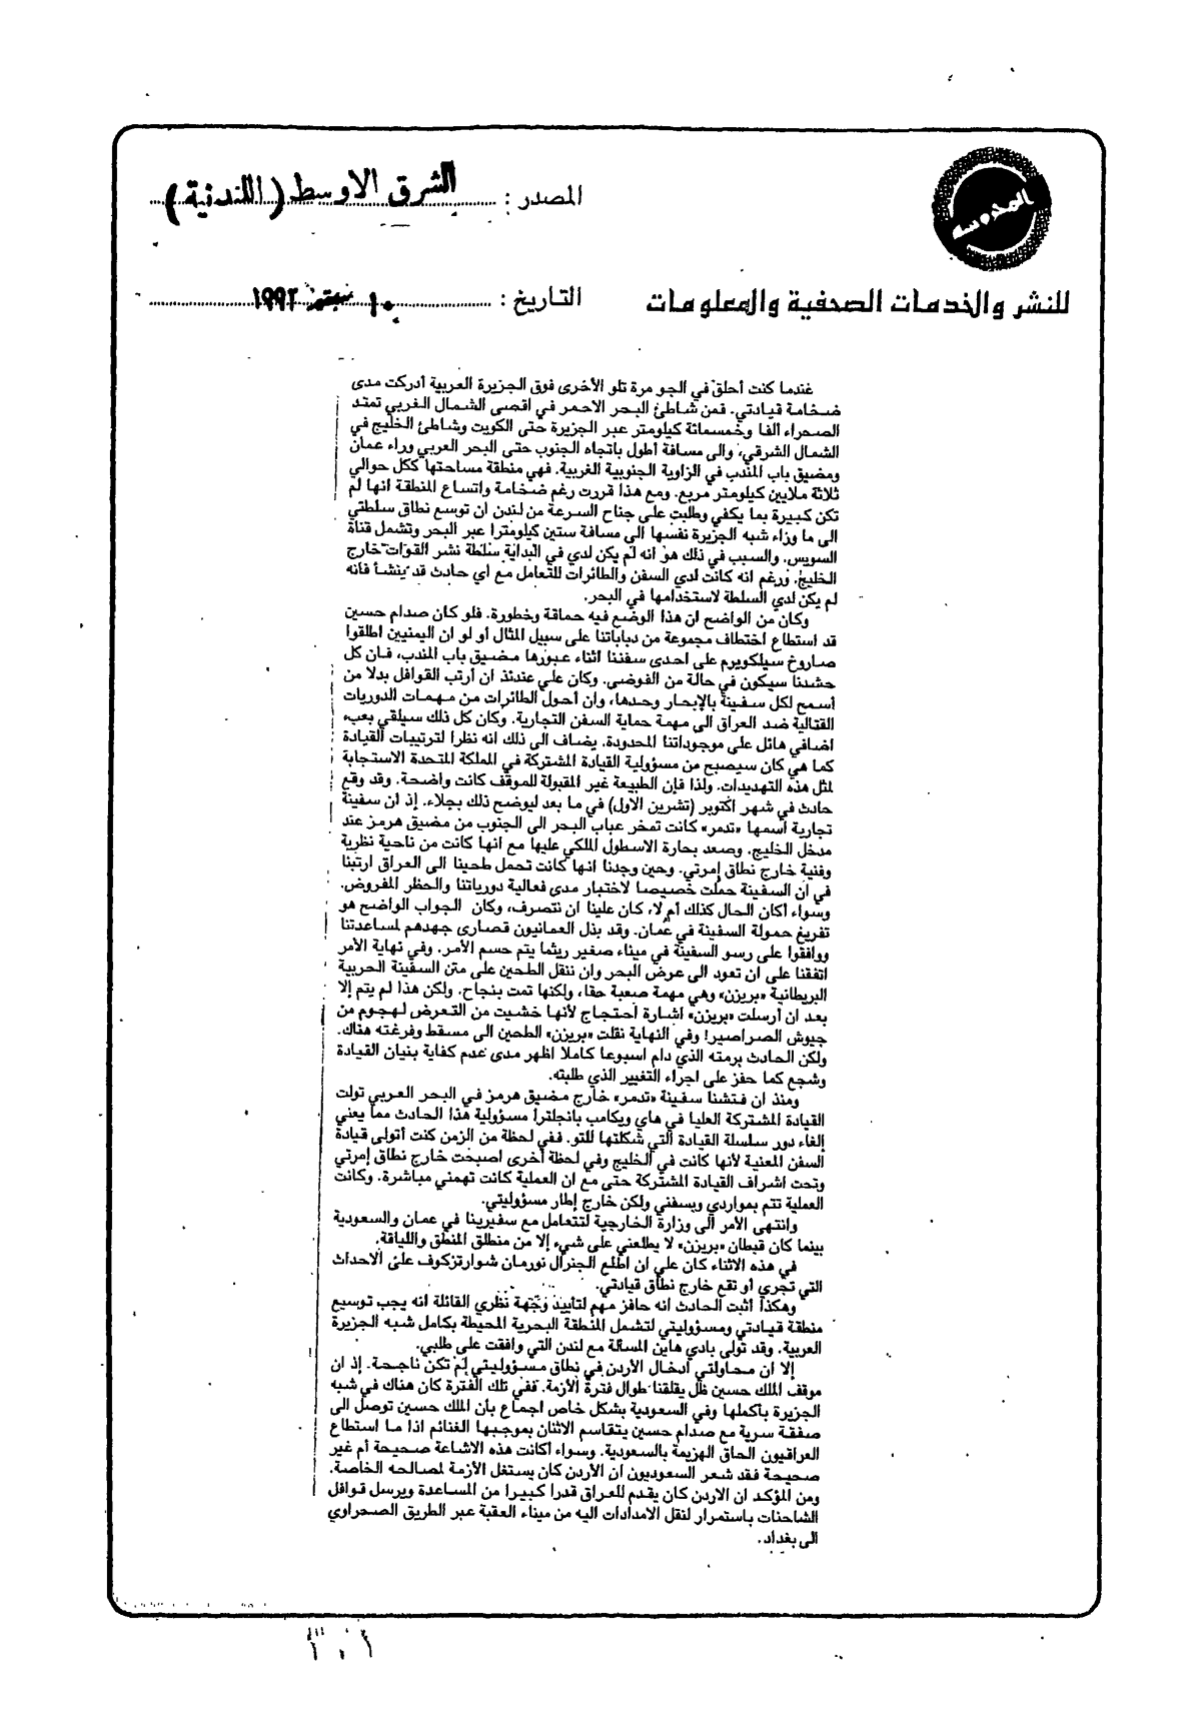 المصدر : الشرق الاوسط (اللندنية)
المحروسة
للنشر والخدمات الصحفية والمعلومات
التاريخ : ١٠ سبتمبر ١٩٩٢
غندما كنت أحلق في الجو مرة تلو الأخرى فوق الجزيرة العربية أدركت مدى
ضخامة قيادتي. فمن شاطئ البحر الاحمر في اقصى الشمال الغربي تمتد
الصحراء الفا وخمسمائة كيلومتر عبر الجزيرة حتى الكويت وشاطئ الخليج في
الشمال الشرقي، والى مسافة أطول باتجاه الجنوب حتى البحر العربي وراء عمان
ومضيق باب المندب في الزاوية الجنوبية الغربية. فهي منطقة مساحتها ككل حوالي
ثلاثة ملايين كيلومتر مربع. ومع هذا قررت رغم ضخامة واتساع المنطقة انها لم
تكن كبيرة بما يكفي وطلبت على جناح السرعة من لندن ان توسع نطاق سلطتي
الى ما وراء شبه الجزيرة نفسها الى مسافة ستين كيلومترا عبر البحر وتشمل قناة
السويس. والسبب في ذلك هو انه لم يكن لدي في البداية سلطة نشر القوات خارج
الخليج. ورغم انه كانت لدي السفن والطائرات للتعامل مع أي حادث قد ينشأ فانه
لم يكن لدي السلطة لاستخدامها في البحر.
وكان من الواضح ان هذا الوضع فيه حماقة وخطورة. فلو كان صدام حسين
قد استطاع اختطاف مجموعة من دباباتنا على سبيل المثال أو لو ان اليمنيين اطلقوا
صاروخ سيلكويرم على احدى سفننا اثناء عبورها مضيق باب المندب، فان كل
حشدنا سيكون في حالة من الفوضى. وكان علي عندئذ ان أرتب القوافل بدلا من
أسمح لكل سفينة بالإبحار وحدها، وان أحول الطائرات من مهمات الدوريات
القتالية ضد العراق الى مهمة حماية السفن التجارية. وكان كل ذلك سيلقي بعبء
اضافي هائل على موجوداتنا المحدودة. يضاف الى ذلك انه نظرا لترتيبات القيادة
كما هي كان سيصبح من مسؤولية القيادة المشتركة في المملكة المتحدة الاستجابة
لمثل هذه التهديدات. ولذا فإن الطبيعة غير المقبولة للموقف كانت واضحة. وقد وقع
حادث في شهر اكتوبر (تشرين الاول) في ما بعد ليوضح ذلك بجلاء. إذ ان سفينة
تجارية أسمها «تدمر» كانت تمخر عباب البحر الى الجنوب من مضيق هرمز عند
مدخل الخليج. وصعد بحارة الاسطول الملكي عليها مع انها كانت من ناحية نظرية
وفنية خارج نطاق إمرتي. وحين وجدنا انها كانت تحمل طحينا الى العراق ارتبنا
في ان السفينة حملت خصيصا لاختبار مدى فعالية دورياتنا والحظر المفروض.
وسواء أكان الحال كذلك أم لا، كان علينا ان نتصرف، وكان الجواب الواضح هو
تفريغ حمولة السفينة في عُمان. وقد بذل العمانيون قصارى جهدهم لمساعدتنا
ووافقوا على رسو السفينة في ميناء صغير ريثما يتم حسم الأمر. وفي نهاية الأمر
اتفقنا على ان تعود الى عرض البحر وان ننقل الطحين على متن السفينة الحربية
البريطانية «بريزن» وهي مهمة صعبة حقا، ولكنها تمت بنجاح. ولكن هذا لم يتم إلا
بعد ان أرسلت «بريزن» اشارة احتجاج لأنها خشيت من التعرض لهجوم من
جيوش الصراصير! وفي النهاية نقلت «بريزن» الطحين الى مسقط وفرغته هناك.
ولكن الحادث برمته الذي دام اسبوعا كاملا اظهر مدى عدم كفاية بنيان القيادة
وشجع كما حفز على اجراء التغيير الذي طلبته.
ومنذ ان فتشنا سفينة «تدمر» خارج مضيق هرمز في البحر العربي تولت
القيادة المشتركة العليا في هاي ويكامب بانجلترا مسؤولية هذا الحادث مما يعني
إلغاء دور سلسلة القيادة التي شكلتها للتو. ففي لحظة من الزمن كنت أتولى قيادة
السفن المعنية لأنها كانت في الخليج وفي لحظة أخرى اصبحت خارج نطاق إمرتي
وتحت اشراف القيادة المشتركة حتى مع ان العملية كانت تهمني مباشرة. وكانت
العملية تتم بمواردي وبسفني ولكن خارج إطار مسؤوليتي.
وانتهى الأمر الى وزارة الخارجية لتتعامل مع سفيرينا في عمان والسعودية
بينما كان قبطان «بريزن» لا يطلعني على شيء إلا من منطلق المنطق واللياقة.
في هذه الاثناء كان علي ان اطلع الجنرال نورمان شوارتزكوف على الاحداث
التي تجري أو تقع خارج نطاق قيادتي.
وهكذا أثبت الحادث انه حافز مهم لتأييد وجهة نظري القائلة انه يجب توسيع
منطقة قيادتي ومسؤوليتي لتشمل المنطقة البحرية المحيطة بكامل شبه الجزيرة
العربية. وقد تولى بادي هاين المسألة مع لندن التي وافقت على طلبي.
إلا ان محاولتي أدخال الأردن في نطاق مسؤوليتي لم تكن ناجحة. إذ ان
موقف الملك حسين ظل يقلقنا طوال فترة الأزمة. ففي تلك الفترة كان هناك في شبه
الجزيرة بأكملها وفي السعودية بشكل خاص اجماع بأن الملك حسين توصل الى
صفقة سرية مع صدام حسين يتقاسم الاثنان بموجبها الغنائم اذا ما استطاع
العراقيون الحاق الهزيمة بالسعودية. وسواء أكانت هذه الاشاعة صحيحة أم غير
صحيحة فقد شعر السعوديون ان الأردن كان يستغل الأزمة لمصالحه الخاصة.
ومن المؤكد ان الاردن كان يقدم للعراق قدرا كبيرا من المساعدة ويرسل قوافل
الشاحنات باستمرار لنقل الامدادات اليه من ميناء العقبة عبر الطريق الصحراوي
الى بغداد.